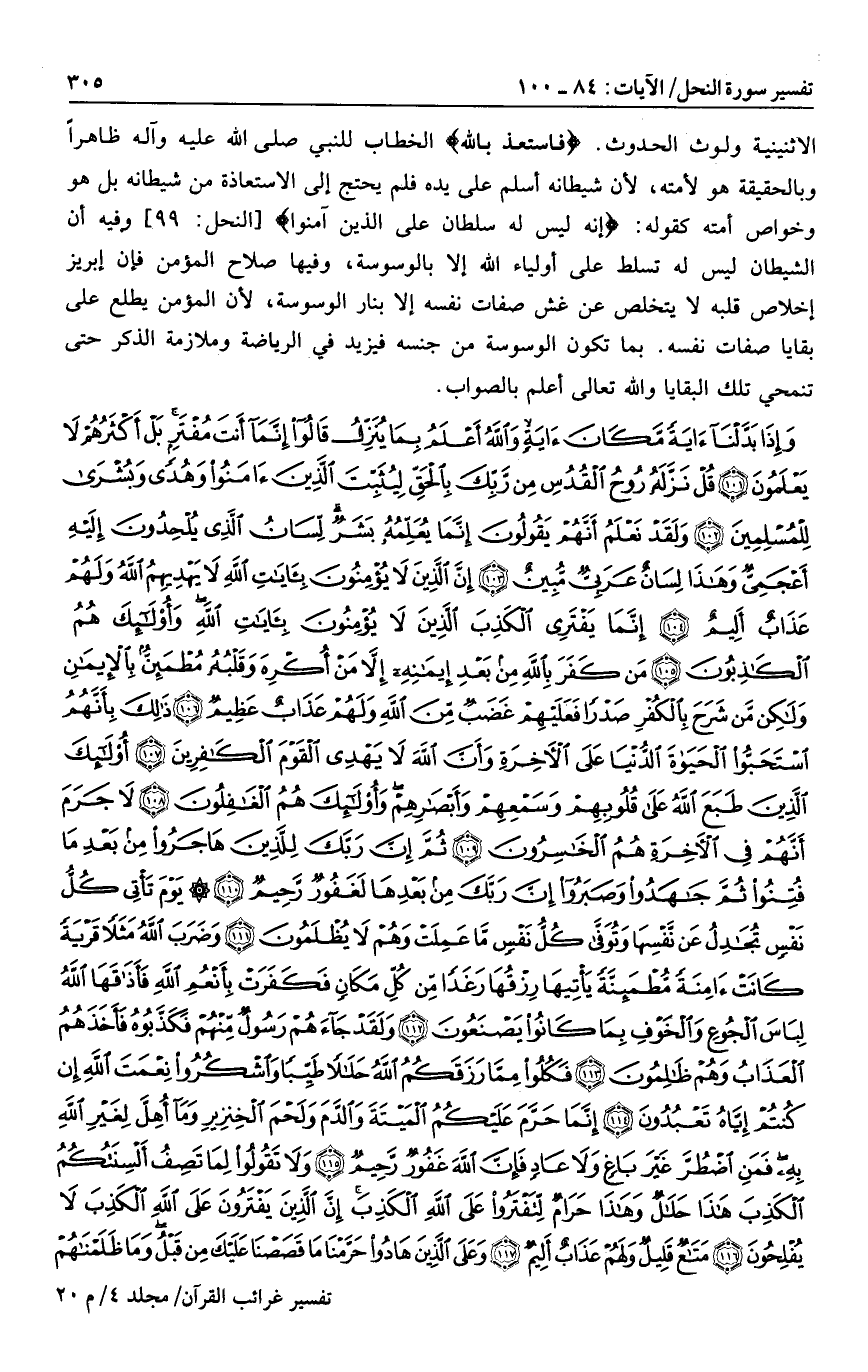 تفسير سورة النحل/ الآيات: ٨٤ - ١٠٠ ٣٠٥
الاثنينية ولوث الحدوث. ﴿فاستعذ بالله﴾ الخطاب للنبي صلى الله عليه وآله ظاهراً
وبالحقيقة هو لأمته، لأن شيطانه أسلم على يده فلم يحتج إلى الاستعاذة من شيطانه بل هو
وخواص أمته كقوله: ﴿إنه ليس له سلطان على الذين آمنوا﴾ [النحل: ٩٩] وفيه أن
الشيطان ليس له تسلط على أولياء الله إلا بالوسوسة، وفيها صلاح المؤمن فإن إبريز
إخلاص قلبه لا يتخلص عن غش صفات نفسه إلا بنار الوسوسة، لأن المؤمن يطلع على
بقايا صفات نفسه. بما تكون الوسوسة من جنسه فيزيد في الرياضة وملازمة الذكر حتى
تنمحي تلك البقايا والله تعالى أعلم بالصواب.
وَإِذَا بَدَّلْنَآ ءَايَةً مَّكَانَ ءَايَةٍۙ وَٱللَّهُ أَعْلَمُ بِمَا يُنَزِّلُ قَالُوٓا۟ إِنَّمَآ أَنتَ مُفْتَرٍۭۚ بَلْ أَكْثَرُهُمْ لَا
يَعْلَمُونَ ﴿١٠١﴾ قُلْ نَزَّلَهُۥ رُوحُ ٱلْقُدُسِ مِن رَّبِّكَ بِٱلْحَقِّ لِيُثَبِّتَ ٱلَّذِينَ ءَامَنُوا۟ وَهُدًى وَبُشْرَىٰ
لِلْمُسْلِمِينَ ﴿١٠٢﴾ وَلَقَدْ نَعْلَمُ أَنَّهُمْ يَقُولُونَ إِنَّمَا يُعَلِّمُهُۥ بَشَرٌۗ لِّسَانُ ٱلَّذِى يُلْحِدُونَ إِلَيْهِ
أَعْجَمِىٌّ وَهَٰذَا لِسَانٌ عَرَبِىٌّ مُّبِينٌ ﴿١٠٣﴾ إِنَّ ٱلَّذِينَ لَا يُؤْمِنُونَ بِـَٔايَٰتِ ٱللَّهِ لَا يَهْدِيهِمُ ٱللَّهُ وَلَهُمْ
عَذَابٌ أَلِيمٌ ﴿١٠٤﴾ إِنَّمَا يَفْتَرِى ٱلْكَذِبَ ٱلَّذِينَ لَا يُؤْمِنُونَ بِـَٔايَٰتِ ٱللَّهِۖ وَأُو۟لَٰٓئِكَ هُمُ
ٱلْكَٰذِبُونَ ﴿١٠٥﴾ مَن كَفَرَ بِٱللَّهِ مِنۢ بَعْدِ إِيمَٰنِهِۦٓ إِلَّا مَنْ أُكْرِهَ وَقَلْبُهُۥ مُطْمَئِنٌّۢ بِٱلْإِيمَٰنِ
وَلَٰكِن مَّن شَرَحَ بِٱلْكُفْرِ صَدْرًا فَعَلَيْهِمْ غَضَبٌ مِّنَ ٱللَّهِ وَلَهُمْ عَذَابٌ عَظِيمٌ ﴿١٠٦﴾ ذَٰلِكَ بِأَنَّهُمُ
ٱسْتَحَبُّوا۟ ٱلْحَيَوٰةَ ٱلدُّنْيَا عَلَى ٱلْـَٔاخِرَةِ وَأَنَّ ٱللَّهَ لَا يَهْدِى ٱلْقَوْمَ ٱلْكَٰفِرِينَ ﴿١٠٧﴾ أُو۟لَٰٓئِكَ
ٱلَّذِينَ طَبَعَ ٱللَّهُ عَلَىٰ قُلُوبِهِمْ وَسَمْعِهِمْ وَأَبْصَٰرِهِمْۖ وَأُو۟لَٰٓئِكَ هُمُ ٱلْغَٰفِلُونَ ﴿١٠٨﴾ لَا جَرَمَ
أَنَّهُمْ فِى ٱلْـَٔاخِرَةِ هُمُ ٱلْخَٰسِرُونَ ﴿١٠٩﴾ ثُمَّ إِنَّ رَبَّكَ لِلَّذِينَ هَاجَرُوا۟ مِنۢ بَعْدِ مَا
فُتِنُوا۟ ثُمَّ جَٰهَدُوا۟ وَصَبَرُوٓا۟ إِنَّ رَبَّكَ مِنۢ بَعْدِهَا لَغَفُورٌ رَّحِيمٌ ﴿١١٠﴾ ۞ يَوْمَ تَأْتِى كُلُّ
نَفْسٍ تُجَٰدِلُ عَن نَّفْسِهَا وَتُوَفَّىٰ كُلُّ نَفْسٍ مَّا عَمِلَتْ وَهُمْ لَا يُظْلَمُونَ ﴿١١١﴾ وَضَرَبَ ٱللَّهُ مَثَلًا قَرْيَةً
كَانَتْ ءَامِنَةً مُّطْمَئِنَّةً يَأْتِيهَا رِزْقُهَا رَغَدًا مِّن كُلِّ مَكَانٍ فَكَفَرَتْ بِأَنْعُمِ ٱللَّهِ فَأَذَٰقَهَا ٱللَّهُ
لِبَاسَ ٱلْجُوعِ وَٱلْخَوْفِ بِمَا كَانُوا۟ يَصْنَعُونَ ﴿١١٢﴾ وَلَقَدْ جَآءَهُمْ رَسُولٌ مِّنْهُمْ فَكَذَّبُوهُ فَأَخَذَهُمُ
ٱلْعَذَابُ وَهُمْ ظَٰلِمُونَ ﴿١١٣﴾ فَكُلُوا۟ مِمَّا رَزَقَكُمُ ٱللَّهُ حَلَٰلًا طَيِّبًا وَٱشْكُرُوا۟ نِعْمَتَ ٱللَّهِ إِن
كُنتُمْ إِيَّاهُ تَعْبُدُونَ ﴿١١٤﴾ إِنَّمَا حَرَّمَ عَلَيْكُمُ ٱلْمَيْتَةَ وَٱلدَّمَ وَلَحْمَ ٱلْخِنزِيرِ وَمَآ أُهِلَّ لِغَيْرِ ٱللَّهِ
بِهِۦۖ فَمَنِ ٱضْطُرَّ غَيْرَ بَاغٍ وَلَا عَادٍ فَإِنَّ ٱللَّهَ غَفُورٌ رَّحِيمٌ ﴿١١٥﴾ وَلَا تَقُولُوا۟ لِمَا تَصِفُ أَلْسِنَتُكُمُ
ٱلْكَذِبَ هَٰذَا حَلَٰلٌ وَهَٰذَا حَرَامٌ لِّتَفْتَرُوا۟ عَلَى ٱللَّهِ ٱلْكَذِبَۚ إِنَّ ٱلَّذِينَ يَفْتَرُونَ عَلَى ٱللَّهِ ٱلْكَذِبَ لَا
يُفْلِحُونَ ﴿١١٦﴾ مَتَٰعٌ قَلِيلٌ وَلَهُمْ عَذَابٌ أَلِيمٌ ﴿١١٧﴾ وَعَلَى ٱلَّذِينَ هَادُوا۟ حَرَّمْنَا مَا قَصَصْنَا عَلَيْكَ مِن قَبْلُۖ وَمَا ظَلَمْنَٰهُمْ
تفسير غرائب القرآن/ مجلد ٤/ م ٢٠